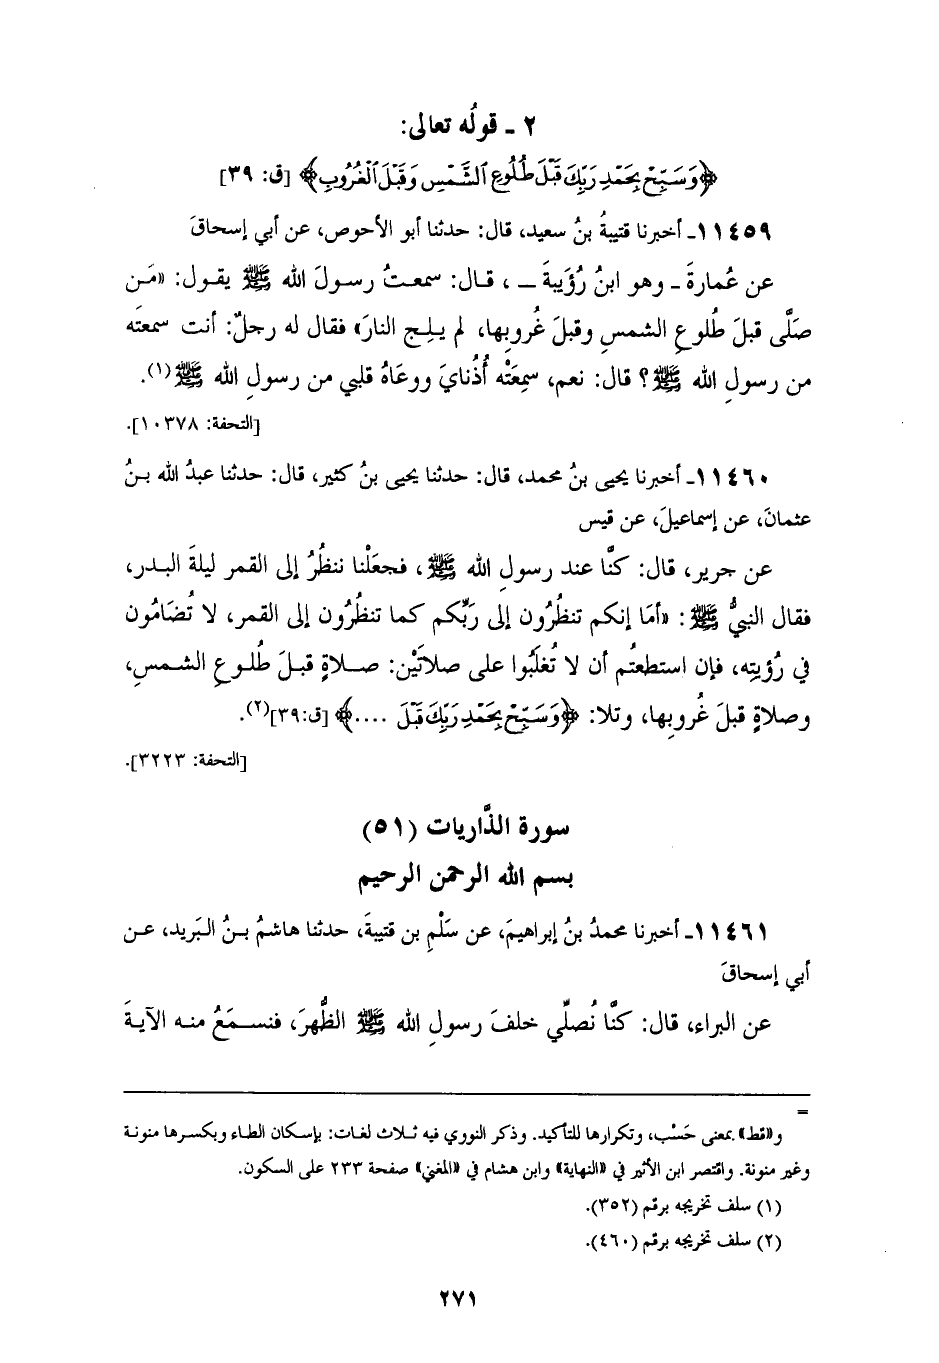 ٢ ـ قولُه تعالى:
﴿وَسَبِّحْ بِحَمْدِ رَبِّكَ قَبْلَ طُلُوعِ ٱلشَّمْسِ وَقَبْلَ ٱلْغُرُوبِ﴾ [ق: ٣٩]
١١٤٥٩ـ أخبرنا قتيبةُ بنُ سعيد، قال: حدثنا أبو الأحوص، عن أبي إسحاقَ
عن عُمارةَ ـ وهو ابنُ رُؤَيبةَ ـ ، قال: سمعتُ رسولَ الله ﷺ يقول: «مَن
صَلَّى قبلَ طُلوعِ الشمسِ وقبلَ غُروبِها، لم يلِجِ النارَ» فقال له رجلٌ: أنت سمعتَه
من رسولِ الله ﷺ؟ قال: نعم، سمِعَتْه أُذُنايَ ووعَاهُ قلبي من رسولِ الله ﷺ(١).
[التحفة: ١٠٣٧٨].
١١٤٦٠ـ أخبرنا يحيى بنُ محمد، قال: حدثنا يحيى بنُ كثير، قال: حدثنا عبدُ الله بنُ
عثمانَ، عن إسماعيلَ، عن قيس
عن جرير، قال: كنَّا عند رسولِ الله ﷺ، فجعَلْنا ننظُرُ إلى القمر ليلةَ البدر،
فقال النبيُّ ﷺ: «أمَا إنكم تنظُرُون إلى رَبِّكم كما تنظُرُون إلى القمر، لا تُضَامُون
في رُؤيتِه، فإن استطعتُم أن لا تُغلَبُوا على صلاتَيْن: صلاةٍ قبلَ طُلوعِ الشمسِ،
وصلاةٍ قبلَ غُروبِها، وتلا: ﴿وَسَبِّحْ بِحَمْدِ رَبِّكَ قَبْلَ ....﴾ [ق:٣٩](٢).
[التحفة: ٣٢٢٣].
سورة الذَّاريات (٥١)
بسم الله الرحمن الرحيم
١١٤٦١ـ أخبرنا محمدُ بنُ إبراهيمَ، عن سَلْمِ بن قتيبةَ، حدثنا هاشمُ بنُ البَريد، عن
أبي إسحاقَ
عن البراء، قال: كنَّا نُصلِّي خلفَ رسولِ الله ﷺ الظُّهرَ، فنسمَعُ منه الآيةَ
=
و«قط» بمعنى حَسْب، وتكرارها للتأكيد. وذكر النووي فيه ثلاث لغات: بإسكان الطاء وبكسرها منونة
وغير منونة. واقتصر ابن الأثير في «النهاية» وابن هشام في «المغني» صفحة ٢٣٣ على السكون.
(١) سلف تخريجه برقم (٣٥٢).
(٢) سلف تخريجه برقم (٤٦٠).
٢٧١